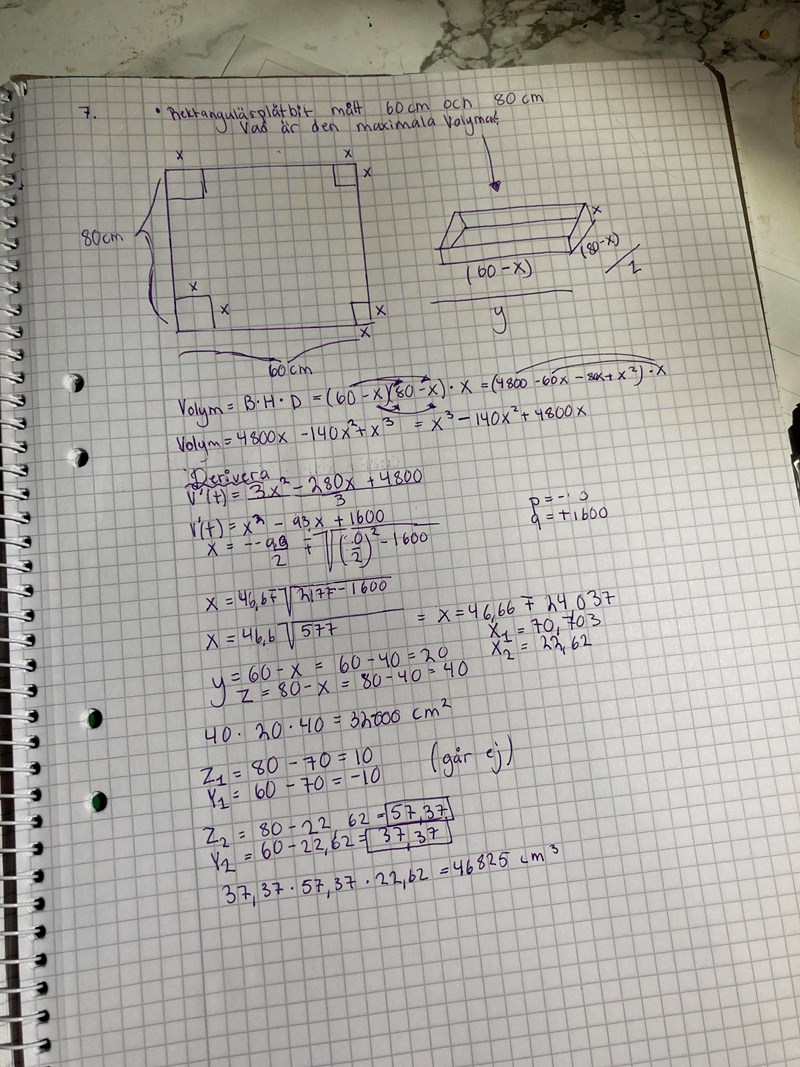 7. • Rektangulärplåtbit mått 60 cm och 80 cm
Vad är den maximala Volymen
x x
x
80cm
x
(80-x)
z
(60-x)
y
x
x
x
x
60cm
Volym = B·H·D = (60-x)(80-x)·x = (4800-60x-80x+x²)·x
Volym = 4800x - 140x² + x³ = x³ - 140x² + 4800x
Derivera
V'(t) = 3x² - 280x + 4800
3
V'(t) = x² - 93x + 1600
p = -
q = +1600
x = --93/2 ∓ √((/2)² - 1600
x = 46,67 ∓ √2177-1600
x = 46,6 √577 = x = 46,66 ∓ 24,037
x₁ = 70,703
x₂ = 22,62
y = 60-x = 60-40 = 20
z = 80-x = 80-40 = 40
40·20·40 = 32000 cm²
Z₁ = 80-70 = 10
Y₁ = 60-70 = -10 (går ej)
Z₂ = 80-22,62 = 57,37
Y₂ = 60-22,62 = 37,37
37,37·57,37·22,62 = 46825 cm³